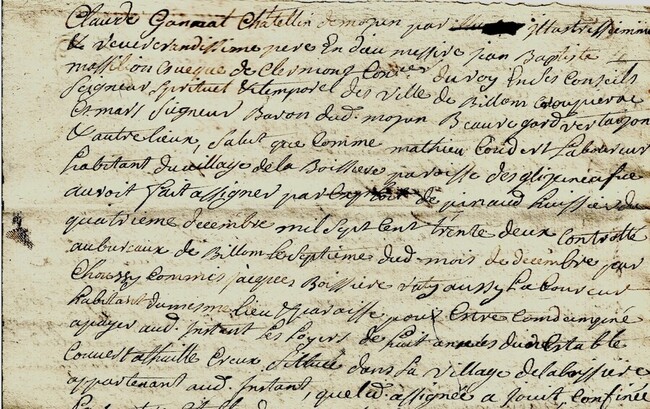 Claude Gannat Chatellin de mozun par illustrissimme
& reverandissime pere En dieu messire jean Baptiste
massilion evesque de Clermont Conser du roy En ses Conseils
Seigneur, spirituel & temporel des ville de Billom
Seigneur Baron dud. mozun Beauregard vertaizon
& autre lieux, Salut que Comme mathieu Coudert Laboureur
habitant du village de la Boissiere paroisse
auroit fait assigner par de pinaud huissier du
quatrieme decembre mil sept Cent trente deux Controllé
au bureaux de Billom le septieme dud. mois de decembre par
Chouzy Commis jacques Boissiere aussy Laboureur
habitant du mesme lieu & paroisse pour Entre Comdampné
a payer aud. Instant les loyers de huit années d'un Estable
Couvert a thuille Creux Sittué dans la village de la boissiere
appartenant aud. Instant, que led. assignée a Jouit, Confinée